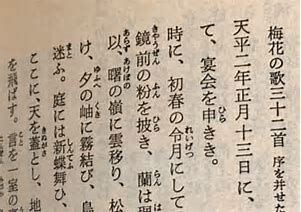 梅花の歌三十二首 序を并せた
天平二年正月十三日に、
て、宴会を申きき。
時に、初春の令月にして
鏡前の粉を披き、蘭は珮
以、曙の嶺に雲移り、松
け、夕の岫に霧結び、鳥
迷ふ。庭には新蝶舞ひ、
ここに、天を蓋とし、地
を飛ばす。言を一室の